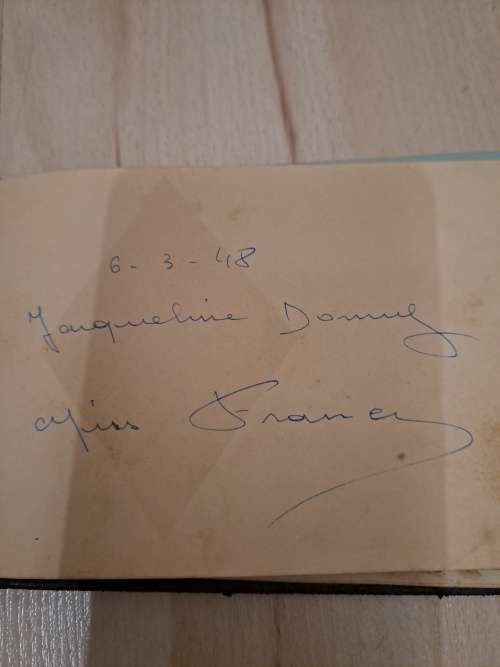 6 - 3 - 48
Jacqueline Donny
Miss France